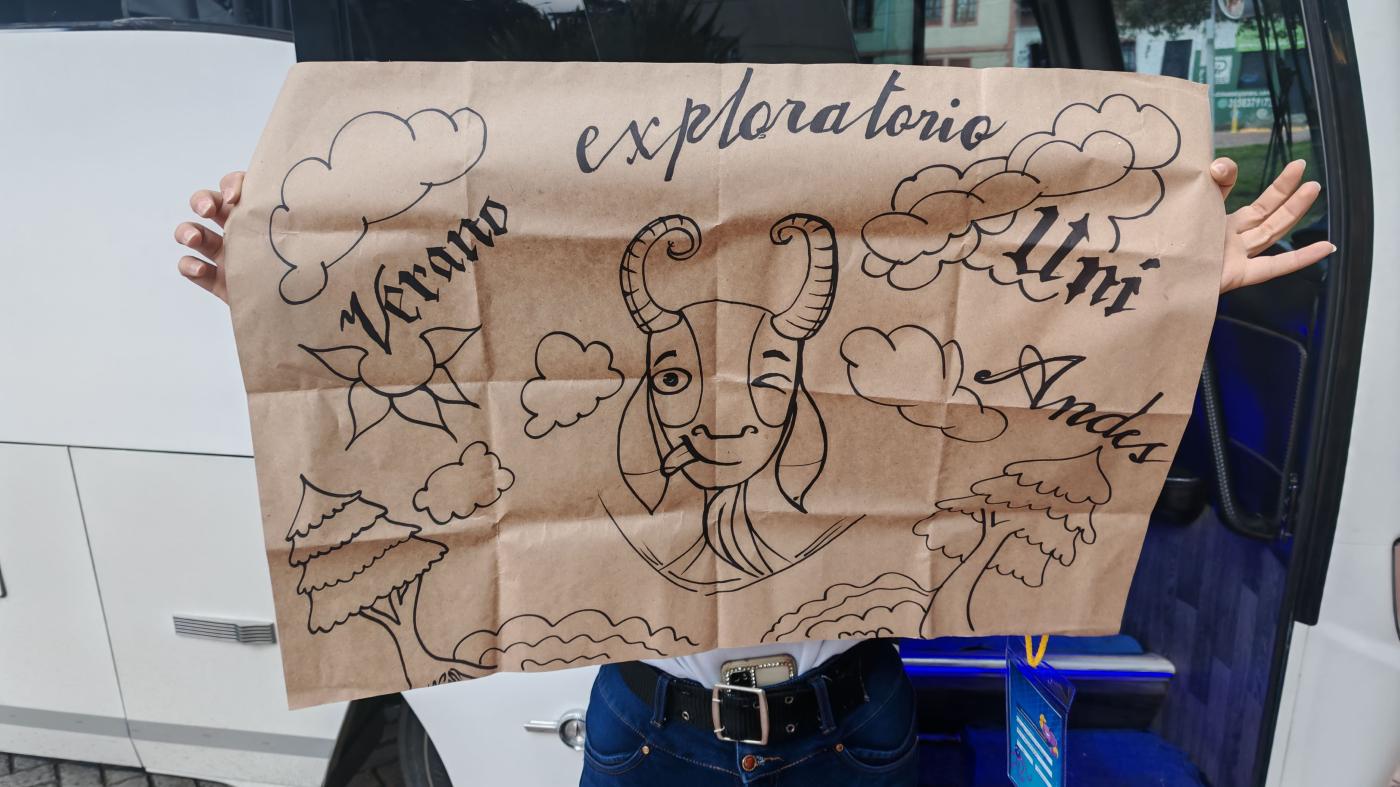 exploratorio
Verano
Uni
Andes